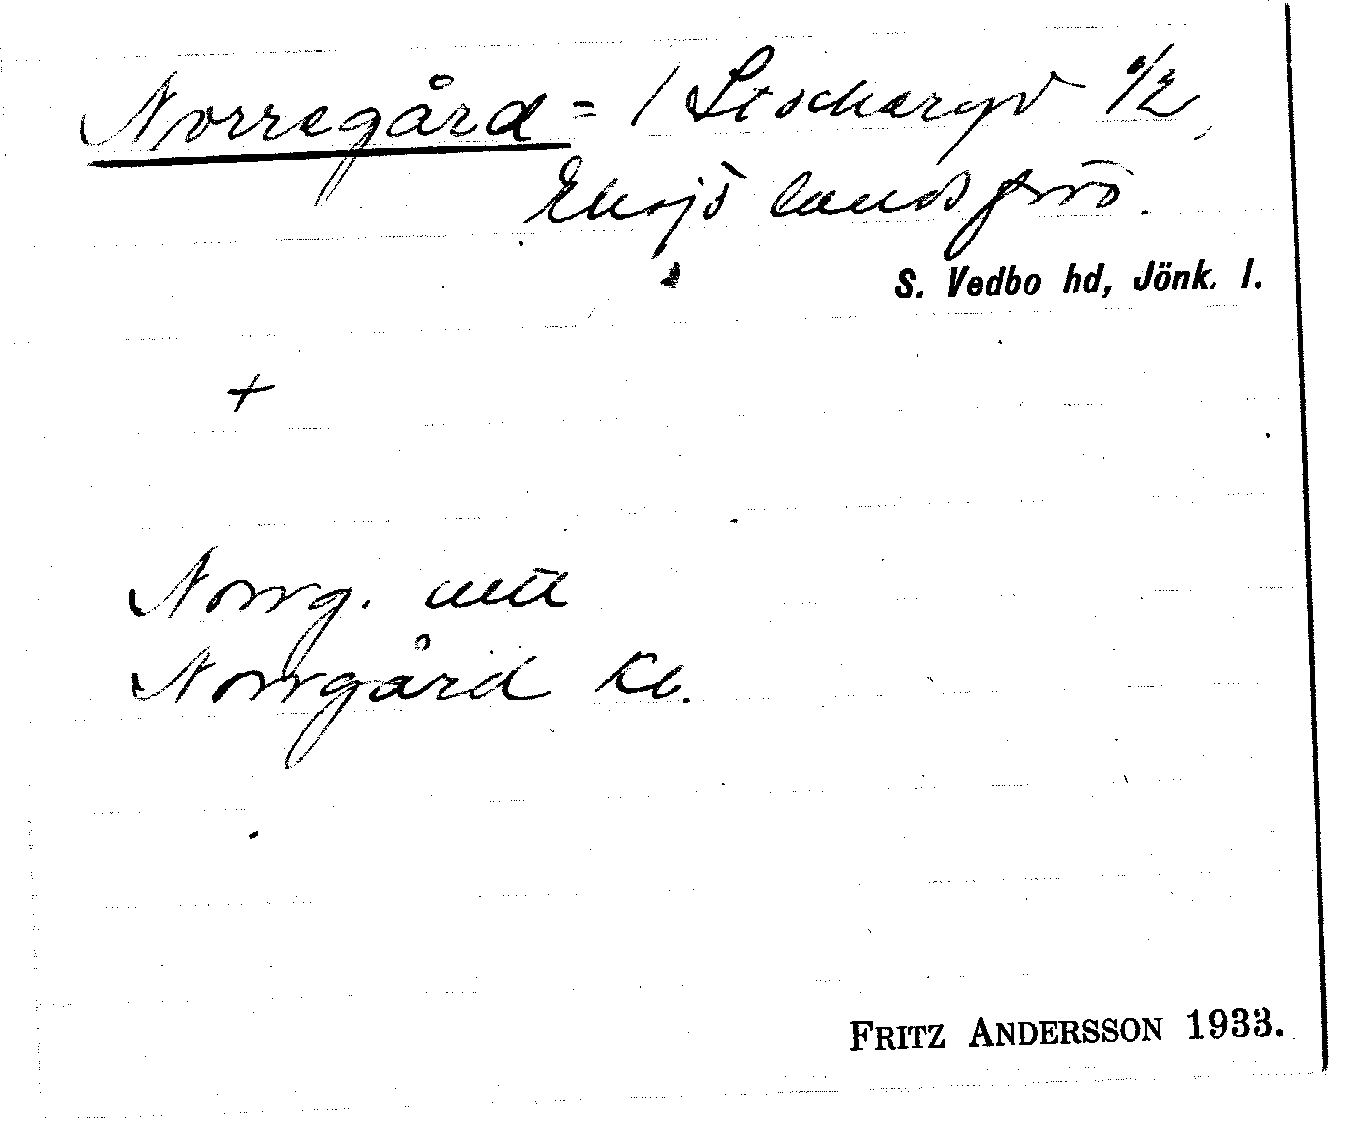 Norregård = 1 Stockaryd 1/2,
Eksjö landsförs.
S. Vedbo hd, Jönk. l.
+
Norrg. utt
Norrgård Kb.
FRITZ ANDERSSON 1933.